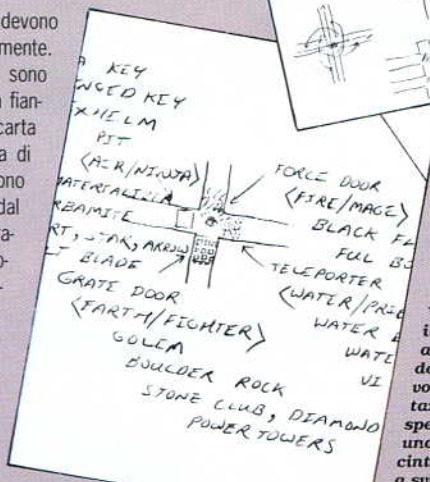 devono
mente.
sono
fian-
carta
a di
ono
dal
KEY
KEY
PIT
<AIR/NINJA>
STAR, ARROW
BLADE
GRATE DOOR
<EARTH/FIGHTER>
GOLEM
BOULDER ROCK
STONE CLUB, DIAMOND
POWER TOWERS
FORCE DOOR
<FIRE/MAGE>
BLACK FL
FUL BO
TELEPORTER
<WATER/PRIE
WATER E
WATE
VI
i
a
de
vo
ta
spe
und
cint
a su